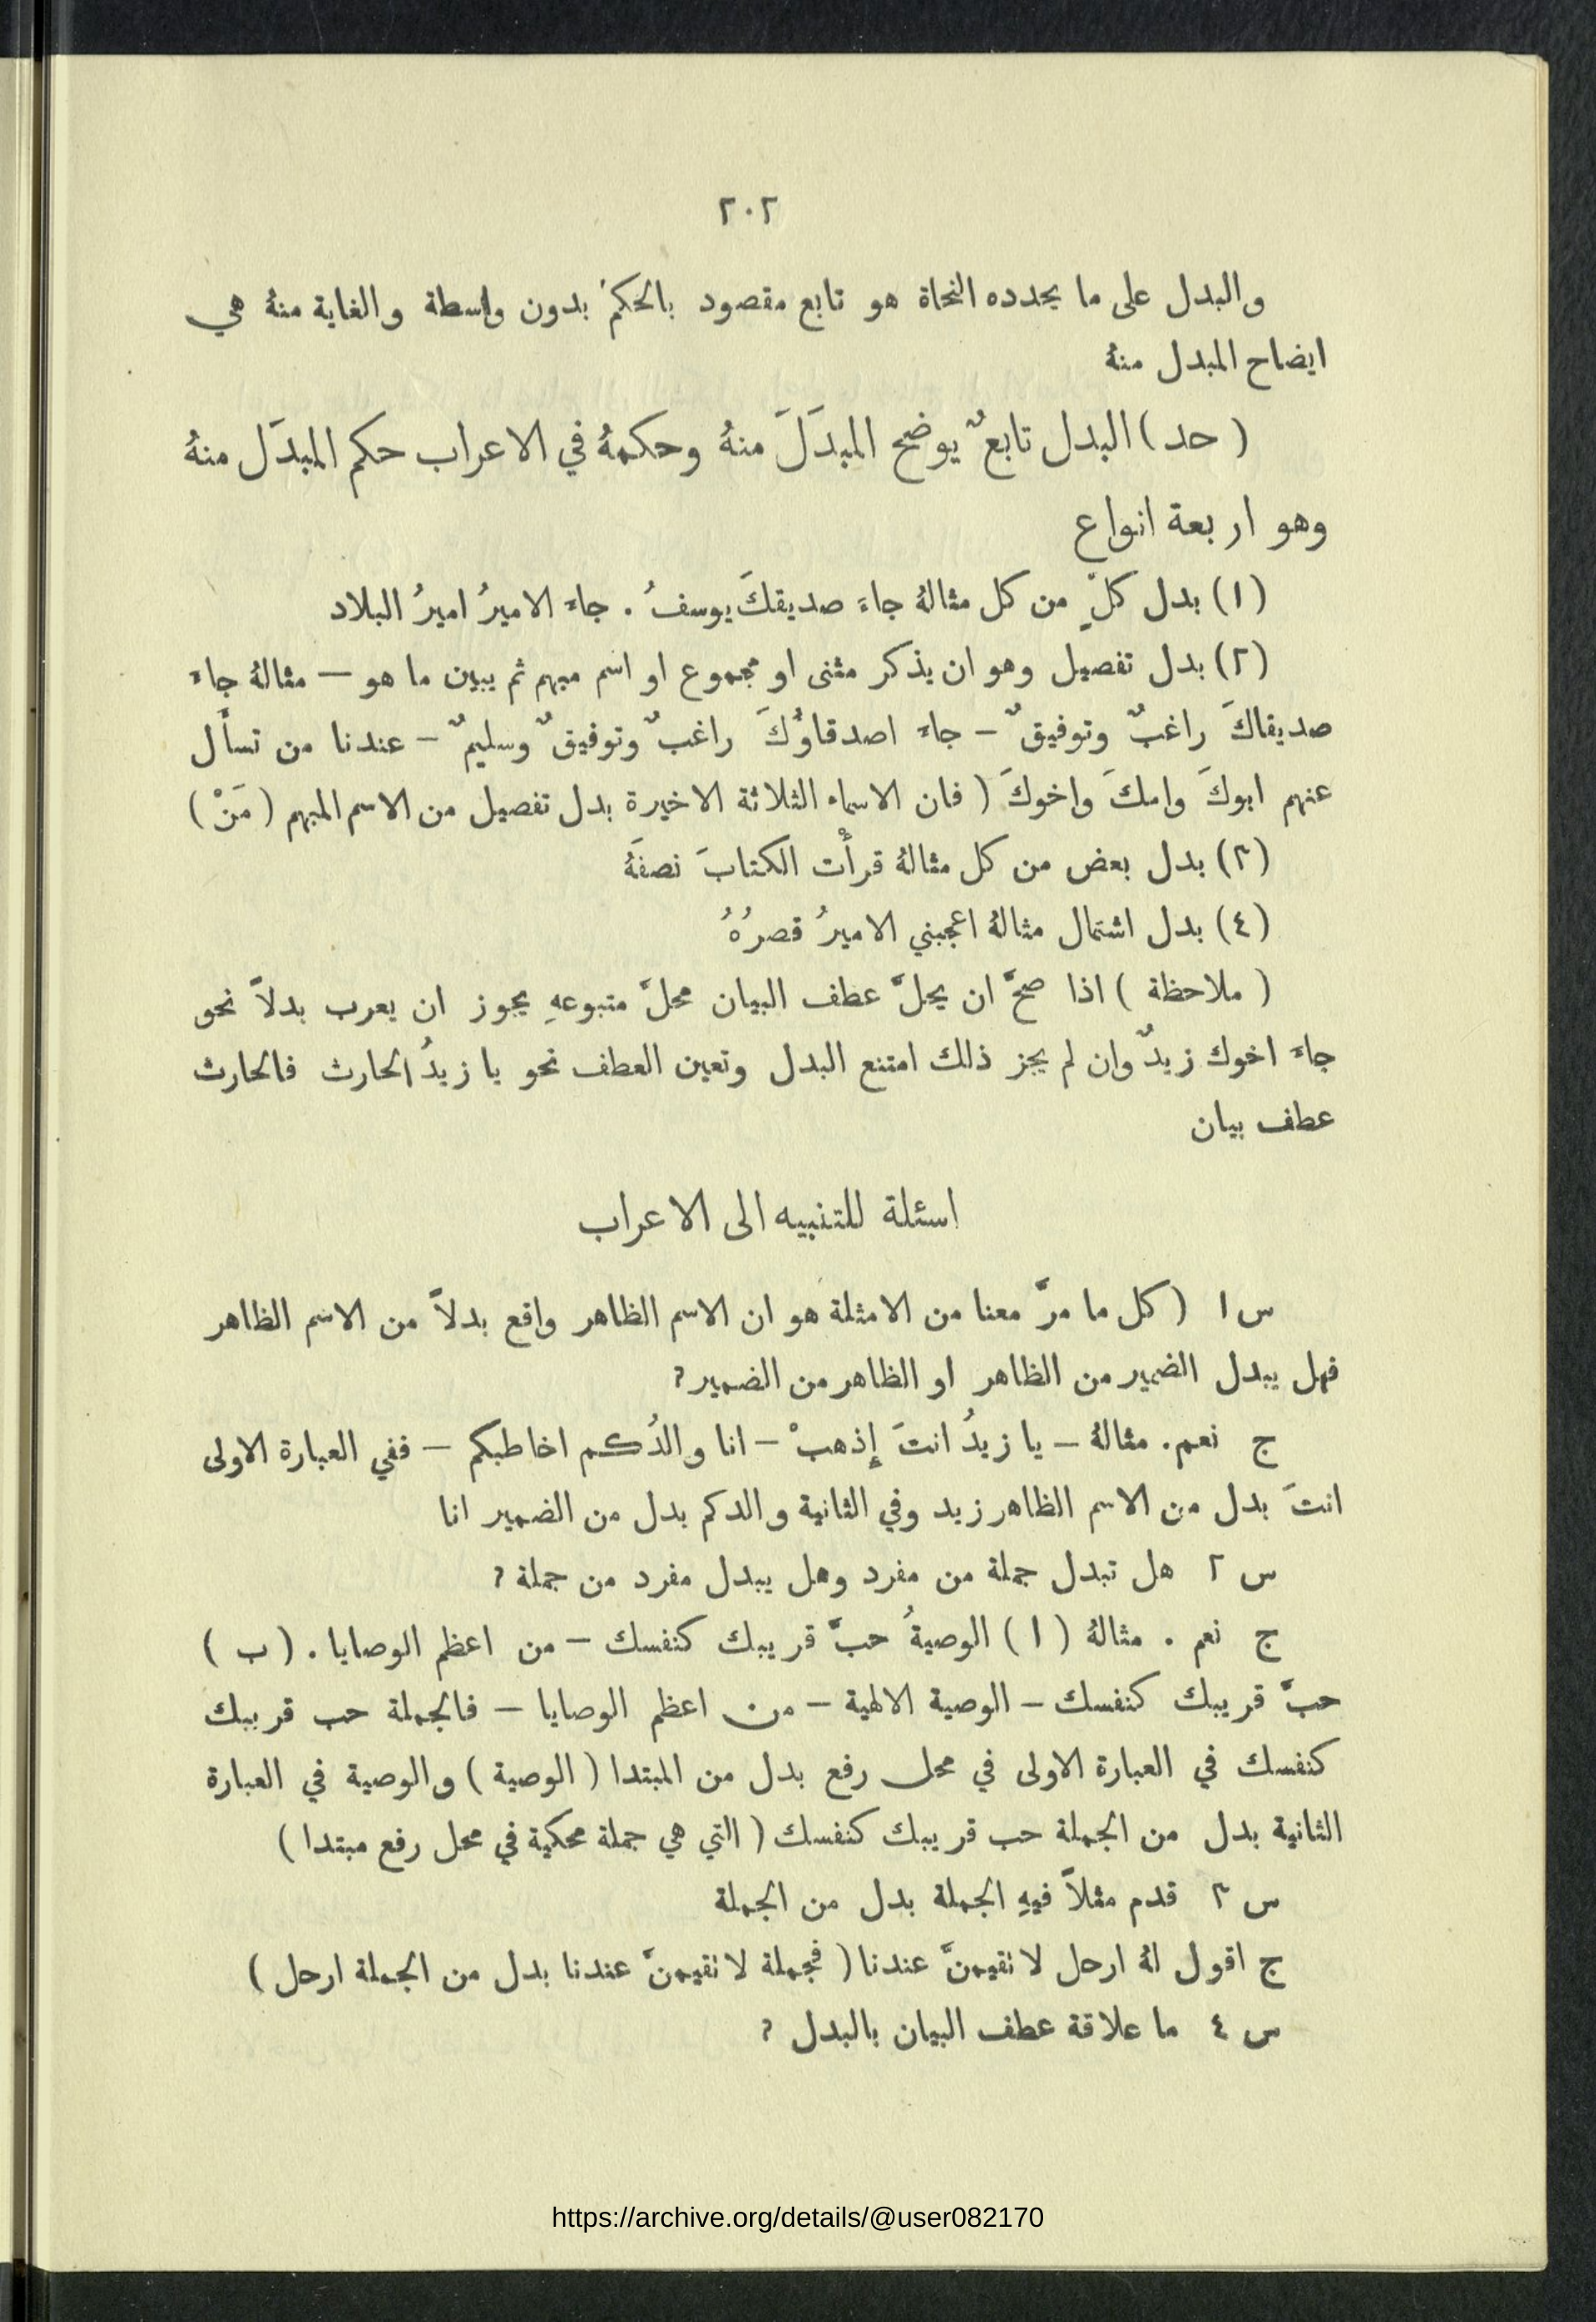 ٢٠٢
والبدل على ما يحدده النحاة هو تابع مقصود بالحكم بدون واسطة والغاية منهُ هي
ايضاح المبدل منهُ
( حد ) البدل تابعٌ يوضح المبدَلَ منهُ وحكمهُ في الاعراب حكم المبدَل منهُ
وهو اربعة انواع
(١) بدل كلٍّ من كل مثالهُ جاءَ صديقكَ يوسفُ . جاءَ الاميرُ اميرُ البلاد
(٢) بدل تفصيل وهو ان يذكر مثنى او مجموع او اسم مبهم ثم يبين ما هو — مثالهُ جاءَ
صديقاكَ راغبٌ وتوفيقٌ – جاءَ اصدقاؤُكَ راغبٌ وتوفيقٌ وسليمٌ – عندنا من تسأَل
عنهم ابوكَ وامكَ واخوكَ ( فان الاسماء الثلاثة الاخيرة بدل تفصيل من الاسم المبهم ( مَنْ )
(٣) بدل بعض من كل مثالهُ قرأْت الكتابَ نصفَهُ
(٤) بدل اشتمال مثالهُ اعجبني الاميرُ قصرُهُ
( ملاحظة ) اذا صحَّ ان يحلَّ عطف البيان محلَّ متبوعهِ يجوز ان يعرب بدلاً نحو
جاءَ اخوك زيدٌ وان لم يجز ذلك امتنع البدل وتعين العطف نحو يا زيدُ الحارث فالحارث
عطف بيان
اسئلة للتنبيه الى الاعراب
س ١ ( كل ما مرَّ معنا من الامثلة هو ان الاسم الظاهر واقع بدلاً من الاسم الظاهر
فهل يبدل الضمير من الظاهر او الظاهر من الضمير ؟
ج نعم . مثالهُ – يا زيدُ انتَ إِذهبْ – انا والدُكم اخاطبكم – ففي العبارة الاولى
انتَ بدل من الاسم الظاهر زيد وفي الثانية والدكم بدل من الضمير انا
س ٢ هل تبدل جملة من مفرد وهل يبدل مفرد من جملة ؟
ج نعم . مثالهُ ( ا ) الوصيةُ حبَّ قريبك كنفسك – من اعظم الوصايا . ( ب )
حبَّ قريبك كنفسك – الوصية الالهية – من اعظم الوصايا – فالجملة حب قريبك
كنفسك في العبارة الاولى في محل رفع بدل من المبتدا ( الوصية ) والوصية في العبارة
الثانية بدل من الجملة حب قريبك كنفسك ( التي هي جملة محكية في محل رفع مبتدا )
س ٣ قدم مثلاً فيهِ الجملة بدل من الجملة
ج اقول لهُ ارحل لا تقيمنَّ عندنا ( فجملة لا تقيمنَّ عندنا بدل من الجملة ارحل )
س ٤ ما علاقة عطف البيان بالبدل ؟
https://archive.org/details/@user082170